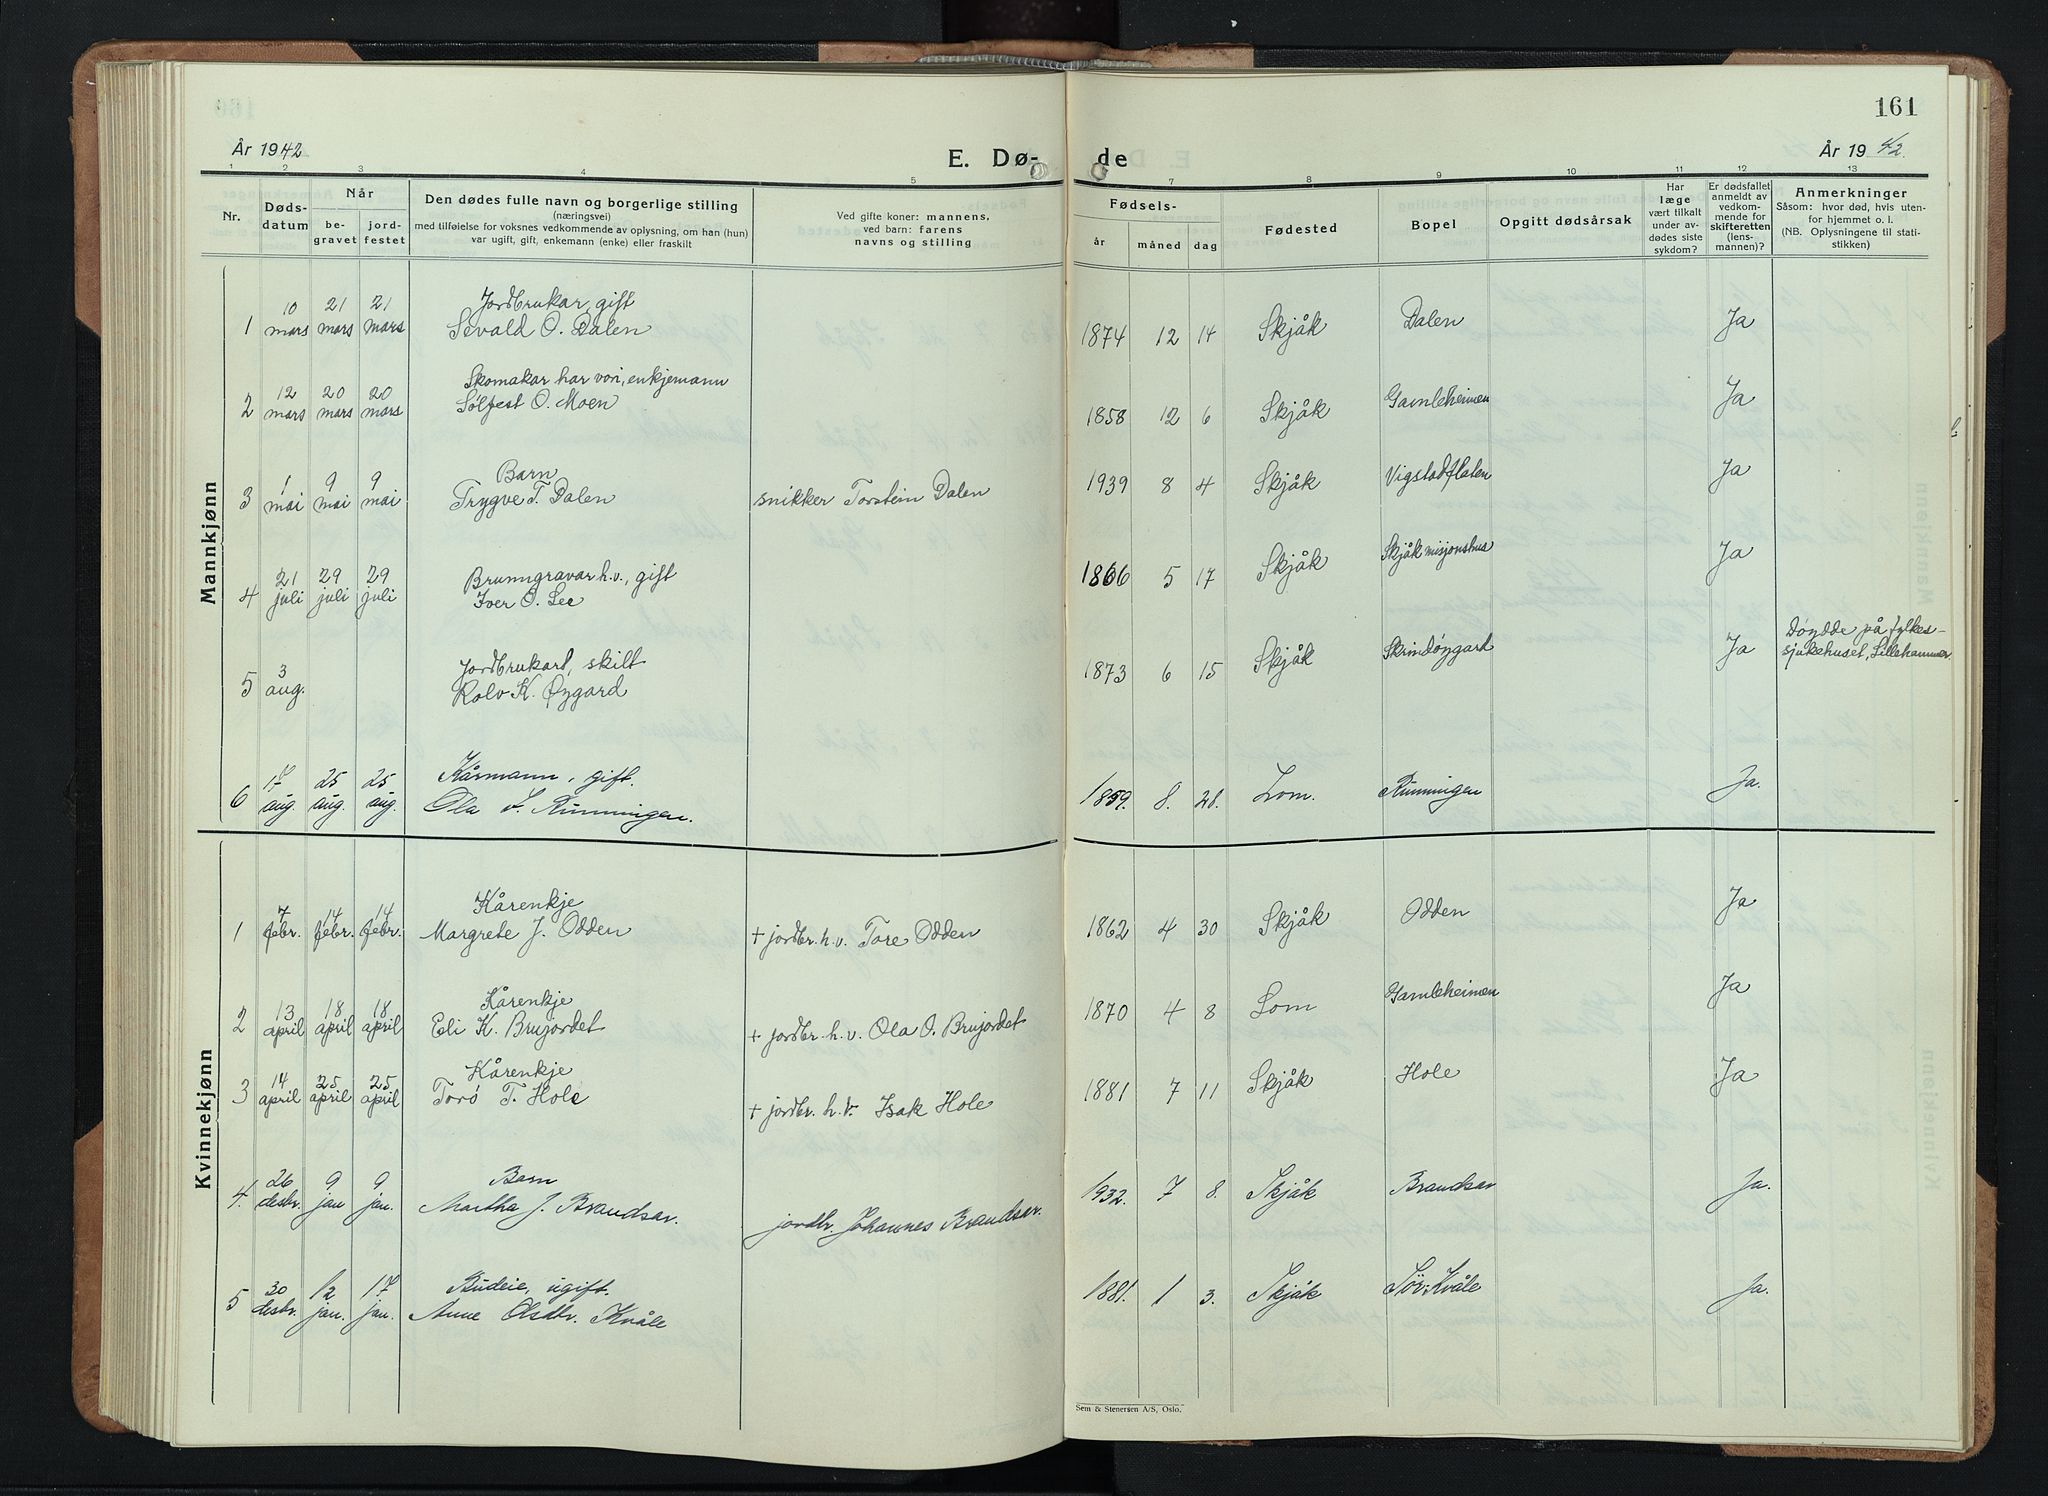 161
År 1942
E. Dø-
de
År 1942
1 2 3 4 5
7 8 9 10 11 12 13
Nr.
Døds-
datum
Når
be-
gravet
jord-
festet
Den dødes fulle navn og borgerlige stilling
(næringsvei)
med tilføielse for voksnes vedkommende av oplysning, om han (hun)
var ugift, gift, enkemann (enke) eller fraskilt
Ved gifte koner: mannens.
ved barn: farens
navns og stilling
Fødsels-
år måned dag
Fødested
Bopel
Opgitt dødsårsak
Har
læge
vært tilkalt
under av-
dødes siste
sykdom?
Er dødsfallet
anmeldt av
vedkom-
mende for
skifteretten
(lens-
mannen)?
Anmerkninger
Såsom: hvor død, hvis uten-
for hjemmet o. l.
(NB. Oplysningene til stati-
stikken)
Mannkjønn
10 21 21 Jordbrukar, gift
1 mars mars mars Sevald O. Dalen 1874 12 14 Skjåk Dalen Ja
12 20 20 Skomakar har vori, enkjemann
2 mars mars mars Sølfest O. Moen 1858 12 6 Skjåk Gamleheimen Ja
1 9 9 Barn
3 mai mai mai Trygve T. Dalen snikker Torstein Dalen 1939 8 4 Skjåk Vigstadflaten Ja
21 29 29 Brunngravar h.v., gift
4 juli juli juli Iver O. Lee 1866 5 17 Skjåk Skjåk misjonshus Ja
3 Jordbrukart, skilt
5 aug. Rolv K. Øygard 1873 6 15 Skjåk Skrindøygard Ja Døydde på fylkes-
sjukehuset, Lillehammer
17 25 25 Kårmann, gift.
6 aug. aug. aug. Ola Runningen. 1859. 8. 28. Lom. Runningen Ja.
Kvinnekjønn
7 14 14 Kårenkje
1 febr. febr. febr. Margrete J. Odden + jordbr. h.v. Tore Odden 1862 4 30 Skjåk Odden Ja
13 18 18 Kårenkje
2 april april april Eli K. Brujordet + jordbr. h.v. Ola O. Brujordet 1870 4 8 Lom Gamleheimen Ja
14 25 25 Kårenkje
3 april april april Torø T. Hole + jordbr. h.v. Isak Hole 1881 7 11 Skjåk Hole Ja
26 9 9 Barn
4. desbr. jan jan. Martha J. Brandsar. jordbr. Johannes Brandsar. 1932. 7 8. Skjåk Brandsar Ja.
30 12 17 Budeie, ugift.
5 desbr. jan. jan. Anne Olsdtr. Kvåle 1881. 1 3. Skjåk Sør-Kvåle Ja.
Sem & Stenersen A/S, Oslo.